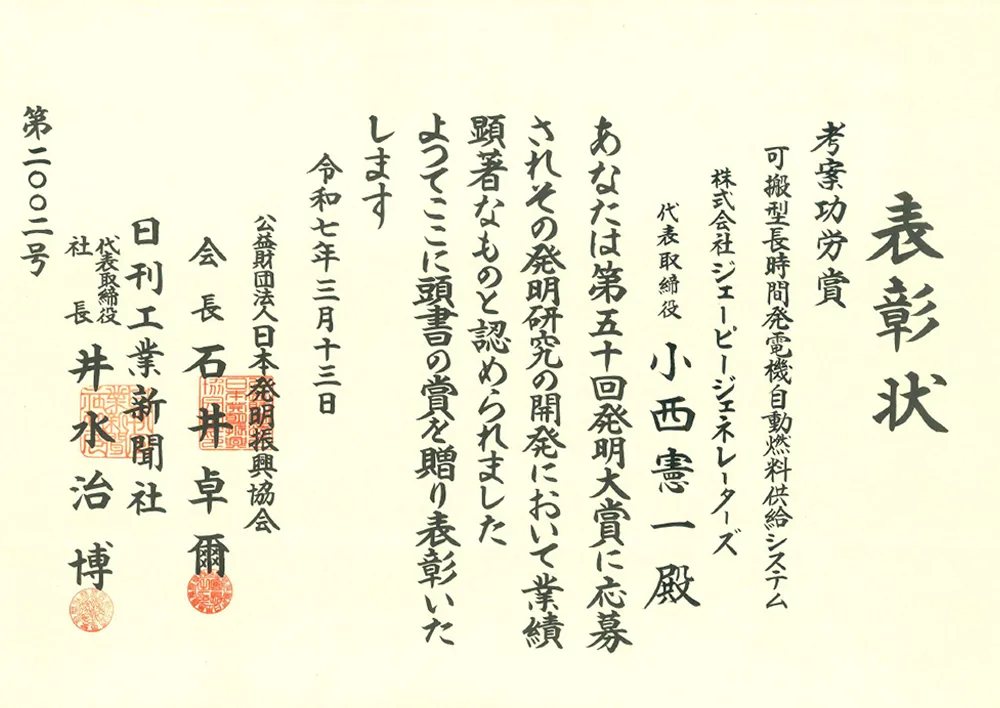 表彰状
考案功労賞
可搬型長時間発電機自動燃料供給システム
株式会社ジェーピージェネレーターズ
代表取締役 小西憲一殿
あなたは第五十回発明大賞に応募
されその発明研究の開発において業績
顕著なものと認められました
よってここに頭書の賞を贈り表彰いた
します
令和七年三月十三日
公益財団法人日本発明振興協会
会長 石井卓爾
日刊工業新聞社
代表取締役
社長 井水治博
第二〇〇二号